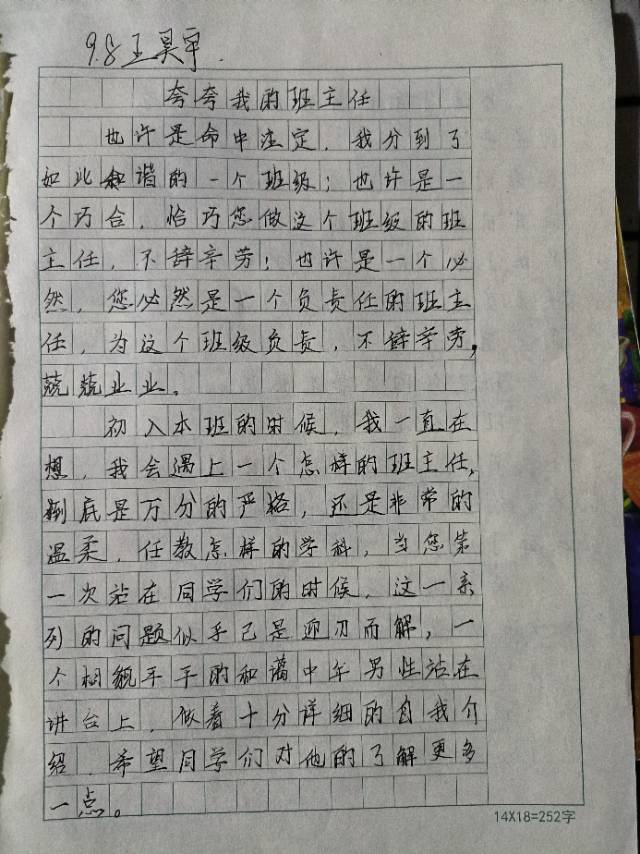 9.8王昊宇.
夸夸我的班主任
也许是命中注定，我分到了
如此和谐的一个班级；也许是一
个巧合，恰巧您做这个班级的班
主任，不辞辛劳；也许是一个必
然，您必然是一个负责任的班主
任，为这个班级负责，不辞辛劳，
兢兢业业。
初入本班的时候，我一直在
想，我会遇上一个怎样的班主任，
到底是万分的严格，还是非常的
温柔，任教怎样的学科，当您第
一次站在同学们的时候，这一系
列的问题似乎已是迎刃而解，一
个相貌平平的和蔼中年男性站在
讲台上，做着十分详细的自我介
绍，希望同学们对他的了解更多
一点。
14X18=252字